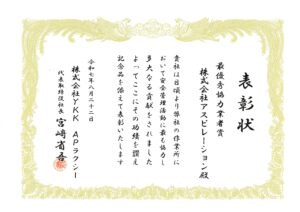 表彰状
最優秀協力業者賞
株式会社アスピレーション殿
貴社は日頃より弊社の作業所に
おいて安全管理活動に最も協力し
多大なる貢献をされました
よってここにその功績を讃え
記念品を添えて表彰いたします
令和七年八月二十二日
株式会社YKK APラクシー
代表取締役社長 宮崎省吾